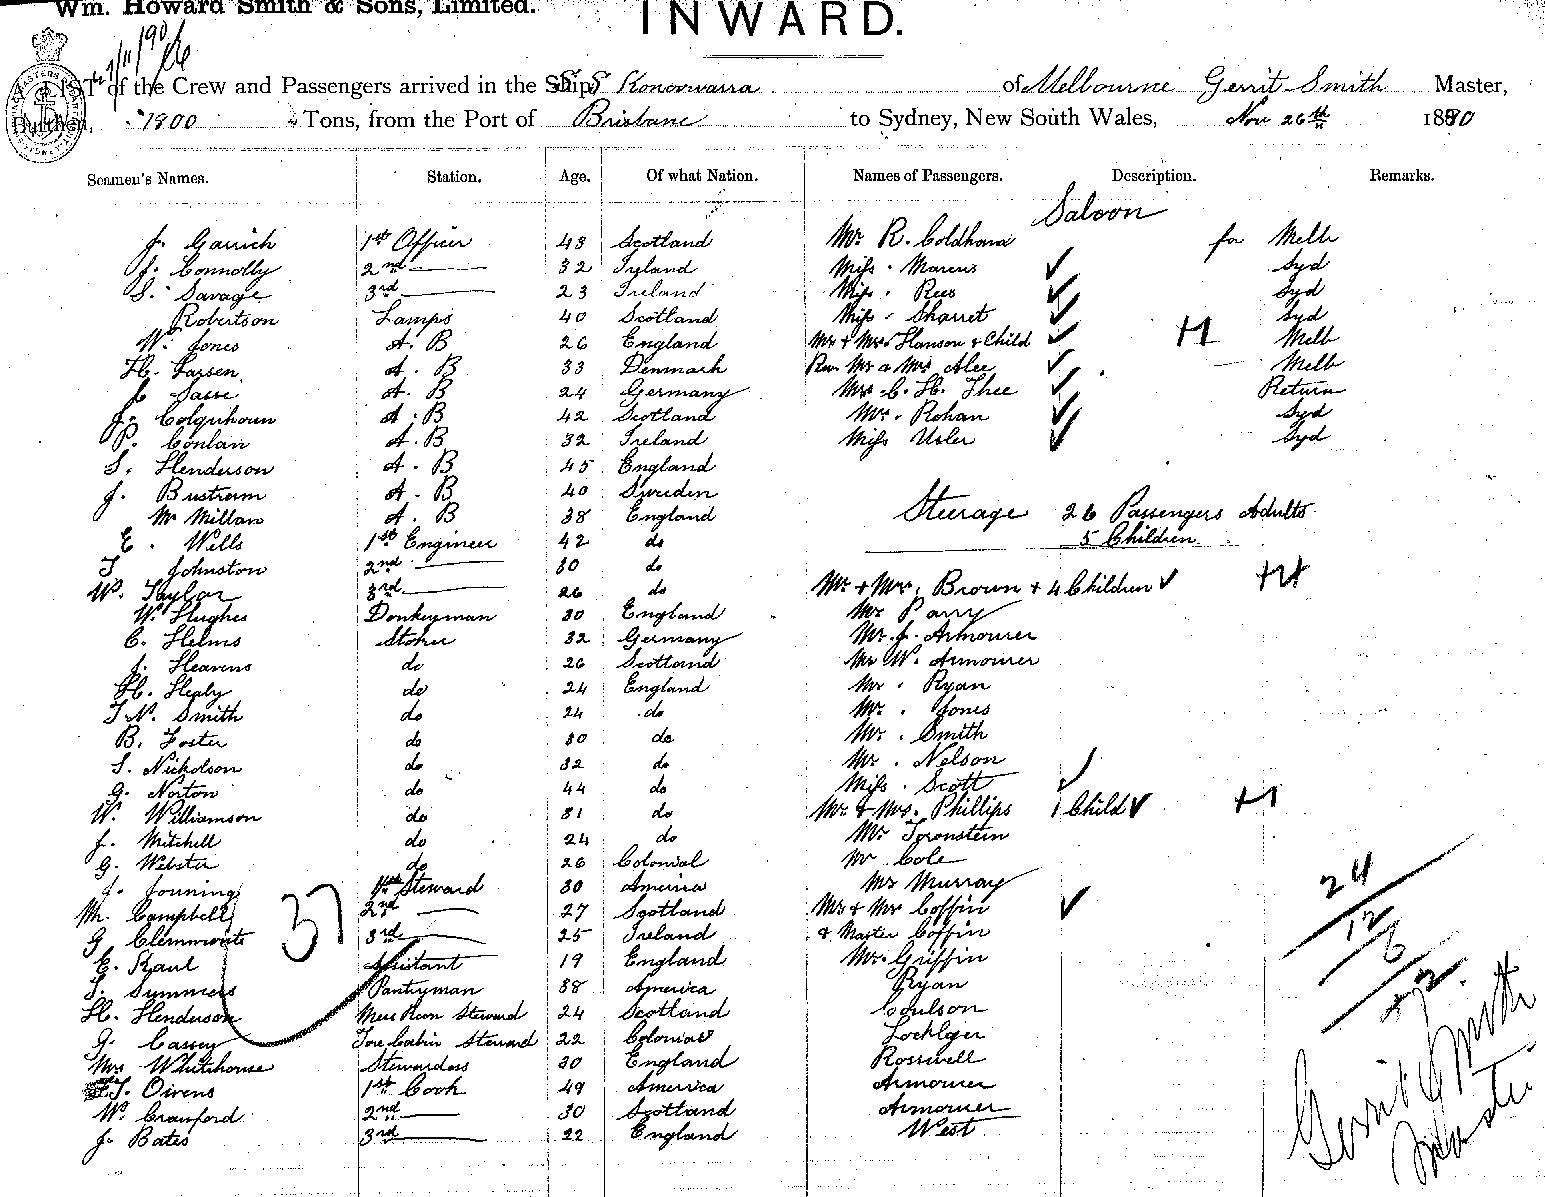 Wm. Howard Smith & Sons, Limited.
INWARD.
LIST of the Crew and Passengers arrived in the Ship S S Konoowarra of Melbourne Gerrit Smith Master,
Burthen, 1900 Tons, from the Port of Brisbane to Sydney, New South Wales, Nov 26th 1890
Seamen's Names. Station. Age. Of what Nation. Names of Passengers. Description. Remarks.
Saloon
J. Garrich 1st Officer 43 Scotland Mr R. Coldham for Melb
J. Connolly 2nd 32 Ireland Miss Marcus Syd
S. Savage 3rd 23 Ireland Miss Rees Syd
Robertson Lamps 40 Scotland Miss Sharret Syd
W. Jones A. B 26 England Mr & Mrs Hanson & Child H Melb
H. Larsen A. B 33 Denmark Rev. Mr & Mrs Alee Melb
Sasse A. B 24 Germany Mrs C. H. Thee Return
J. Colquhoun A. B 42 Scotland Mr. Rohan Syd
P. Conlan A. B 32 Ireland Miss Usler Syd
S. Henderson A. B 45 England
J. Bustrum A. B 40 Sweden
McMillan A. B 38 England Steerage 26 Passengers Adults
E. Wells 1st Engineer 42 do 5 Children
T Johnston 2nd 30 do
W. Taylor 3rd 26 do Mr & Mrs. Brown & 4 Children
W. Hughes Donkeyman 30 England Mr Parry
C. Helms Stoker 32 Germany Mr. J. Armourer
J. Heavens do 26 Scotland Mr W. Armourer
H. Healy do 24 England Mr. Ryan
T. N. Smith do 24 do Mr. Jones
B. Foster do 30 do Mr. Smith
S. Nicholson do 32 do Mr. Nelson
G. Norton do 44 do Miss Scott
W. Williamson do 31 do Mr & Mrs. Phillips 1 Child
J. Mitchell do 24 do Mr Toronstein
G. Webster do 26 Colonial Mr Cole
J. Jouning 1st Steward 30 America Mr Murray
M. Campbell 2nd 27 Scotland Mr & Mr Coffin
G Clemmonts 3rd 25 Ireland & Master Coffin
E. Kaul Assistant 19 England Mr. Griffin
T. Summers Pantryman 38 America Ryan
H. Henderson Mess Room Steward 24 Scotland Coulson
G. Cassey Fore Cabin Steward 22 Colonial
Mrs Whitehouse Stewardess 30 England Rosswell
T. Owens 1st Cook 49 America Armourer
W. Crawford 2nd 30 Scotland Armourer
J. Bates 3rd 22 England West
37
24
12
6
2
Gerrit Smith
Master